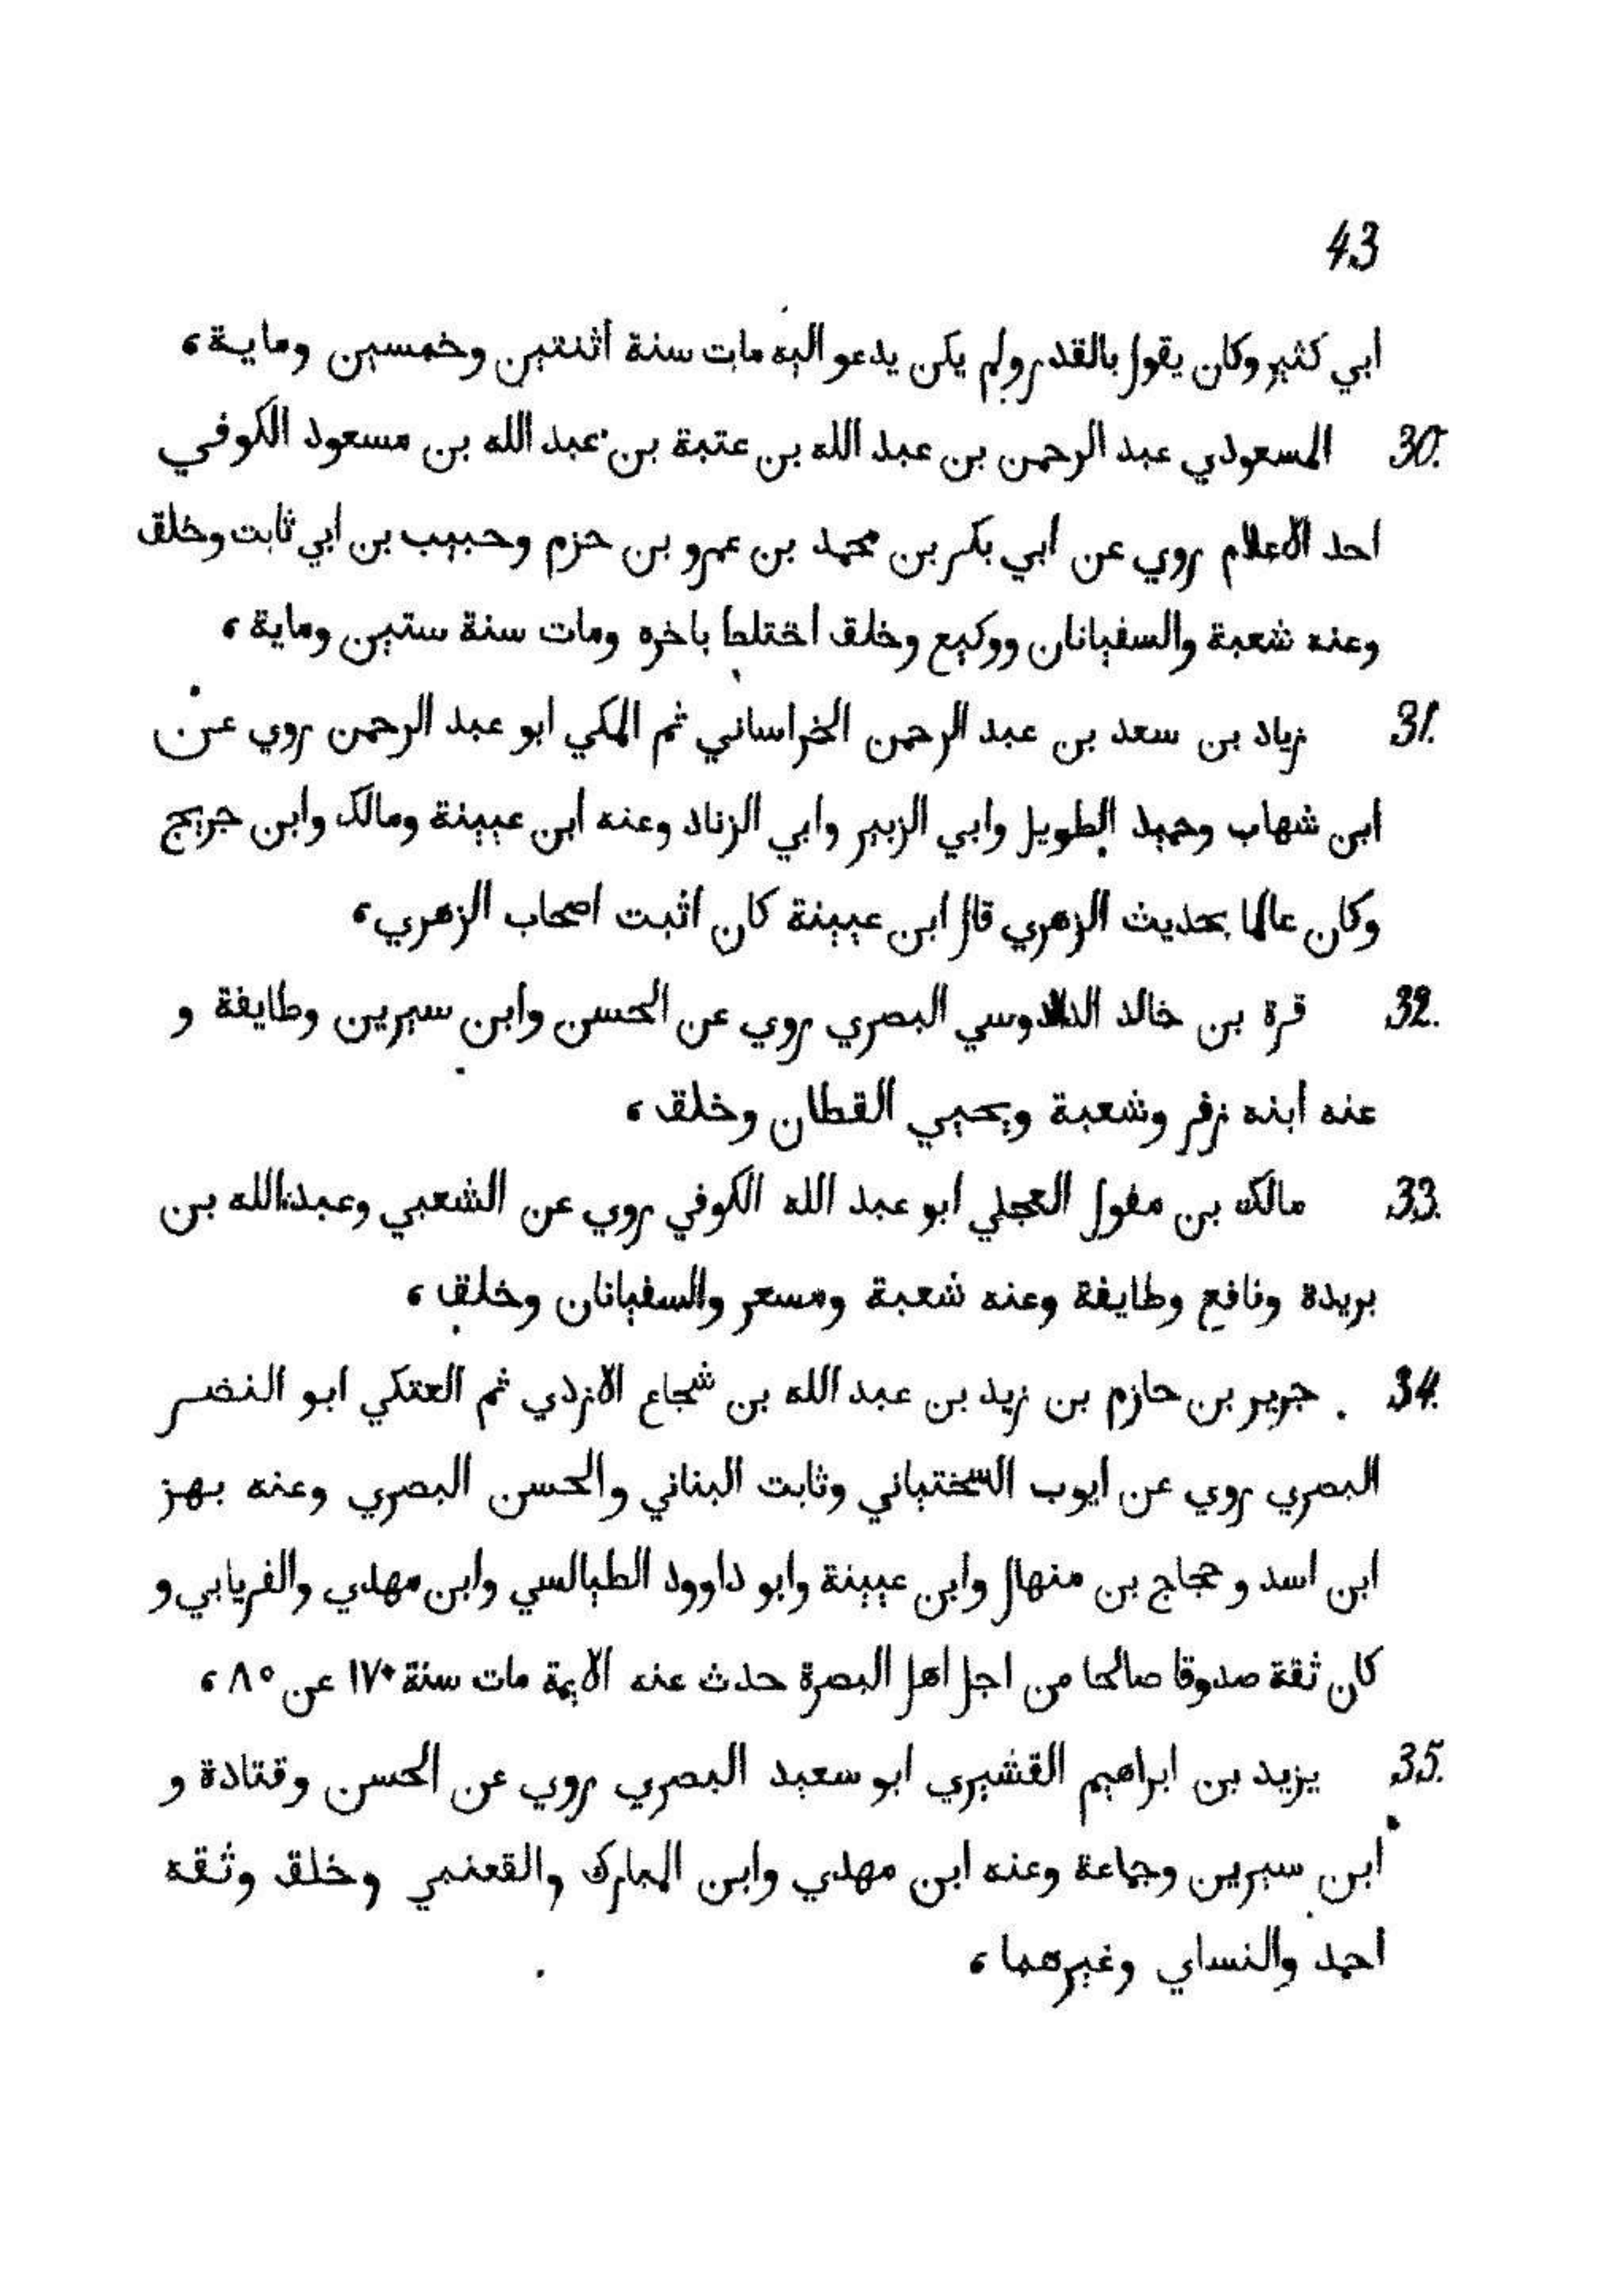 43
ابي كثير وكان يقول بالقدر ولم يكن يدعو اليه مات سنة اثنتين وخمسين وماية،
30. المسعودي عبد الرحمن بن عبد الله بن عتبة بن عبد الله بن مسعود الكوفي
احد الاعلام روي عن ابي بكر بن محمد بن عمرو بن حزم وحبيب بن ابي ثابت وخلق
وعنه شعبة والسفيانان ووكيع وخلق اختلط باخره ومات سنة ستين وماية،
31. زياد بن سعد بن عبد الرحمن الخراساني ثم المكي ابو عبد الرحمن روي عن
ابن شهاب وحميد الطويل وابي الزبير وابي الزناد وعنه ابن عيينة ومالك وابن جريج
وكان عالما بحديث الزهري قال ابن عيينة كان اثبت اصحاب الزهري،
32. قرة بن خالد البصري روي عن الحسن وابن سيرين وطايفة و
عنه ابنه زفر وشعبة ويحيي القطان وخلق،
33. مالك بن مغول العجلي ابو عبد الله الكوفي روي عن الشعبي وعبد الله بن
بريدة ونافع وطايفة وعنه شعبة ومسعر والسفيانان وخلق،
34. جرير بن حازم بن زيد بن عبد الله بن شجاع الازدي ثم العتكي ابو النضر
البصري روي عن ايوب السختياني وثابت البناني والحسن البصري وعنه بهز
ابن اسد وحجاج بن منهال وابن عيينة وابو داوود الطيالسي وابن مهدي والفريابي و
كان ثقة صدوقا صالحا من اجل اهل البصرة حدث عنه الايمة مات سنة ١٧٠ عن ٨٥،
35. يزيد بن ابراهيم القشيري ابو سعيد البصري روي عن الحسن وقتادة و
ابن سيرين وجماعة وعنه ابن مهدي وابن المبارك والقعنبي وخلق وثقه
احمد والنساي وغيرهما،